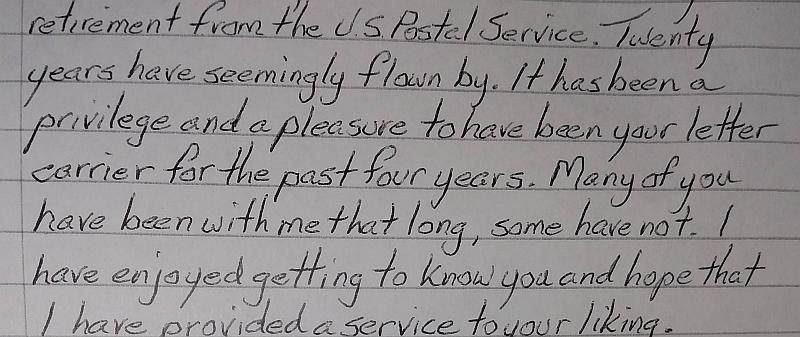 retirement from the U.S. Postal Service. Twenty
years have seemingly flown by. It has been a
privilege and a pleasure to have been your letter
carrier for the past four years. Many of you
have been with me that long, some have not. I
have enjoyed getting to know you and hope that
I have provided a service to your liking.